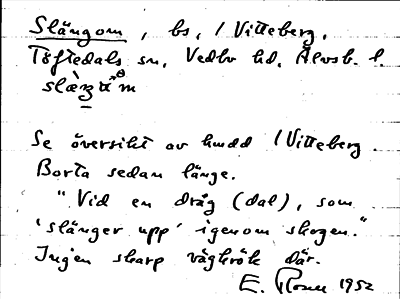 Slängom, bs, / Vitteberg,
Töftedals sn, Vedbo hd, Älvsb. l.
Se översikt av hmdd / Vitteberg.
Borta sedan länge.
"Vid en dråg (dal), som
'slänger upp' igenom skogen."
Ingen skarp vägkrök där.
E. 1952